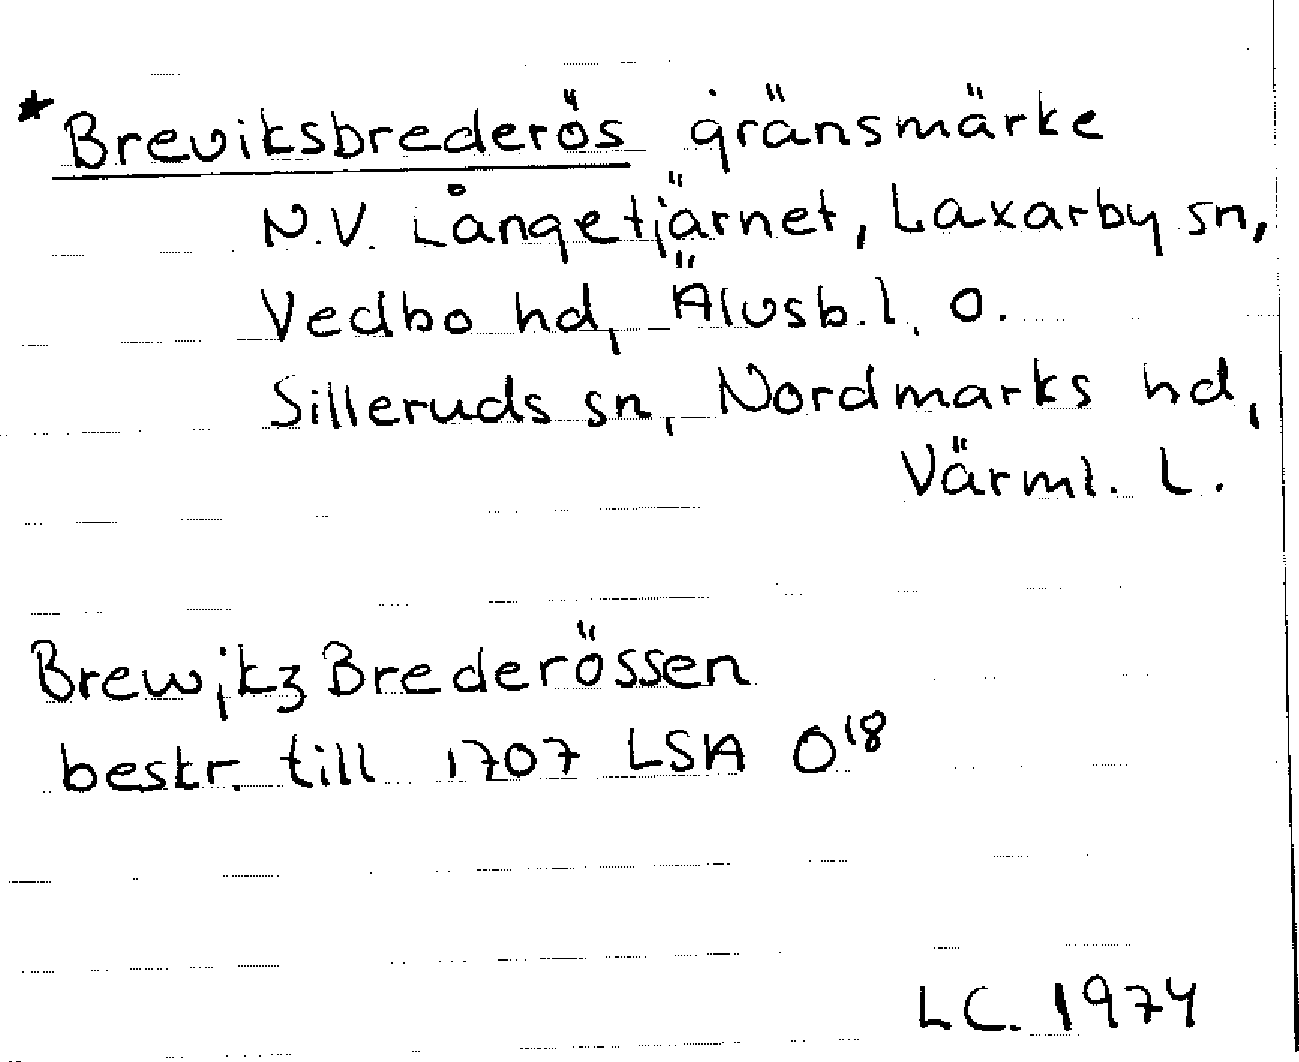 *Breviksbrederös gränsmärke
N.V. Långetjärnet, Laxarby sn,
Vedbo hd, Älvsb. l. o.
Silleruds sn, Nordmarks hd,
Värml. L.
Brewjkz Brederössen
bestr. till 1707 LSA O18
LC. 1974